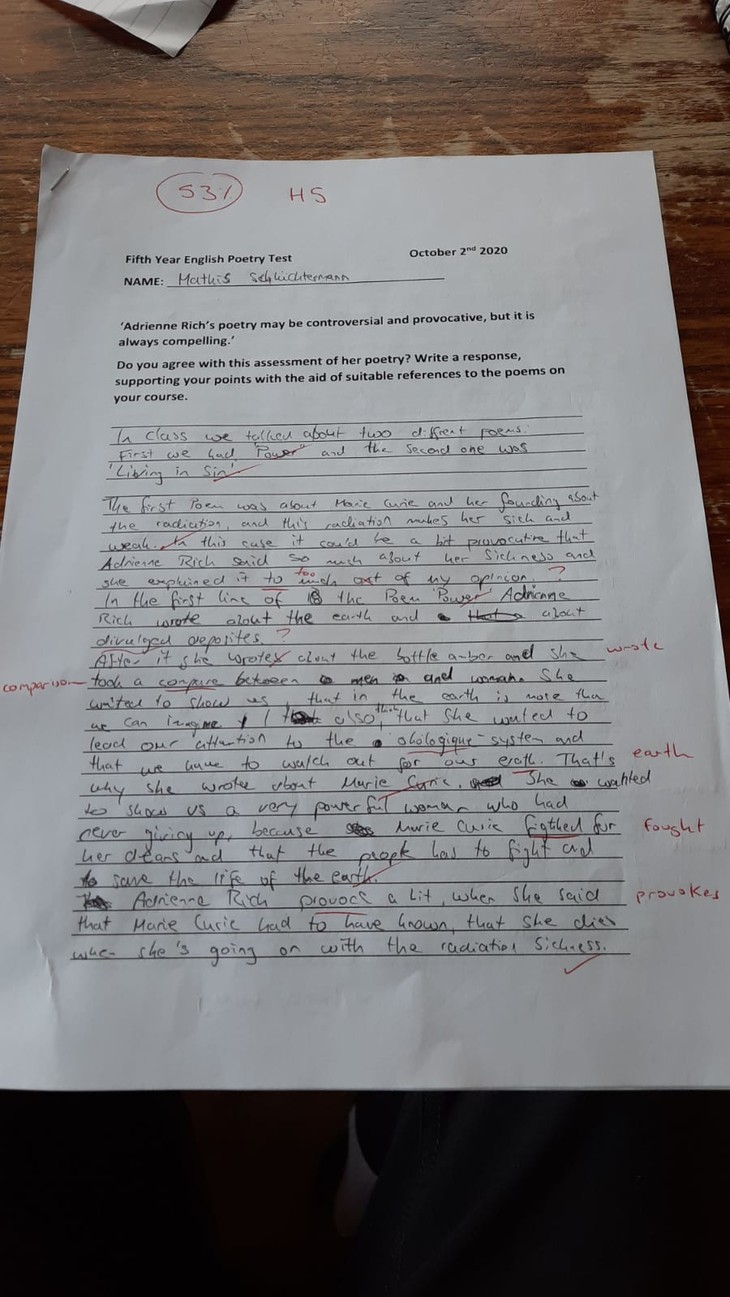 53% H5
Fifth Year English Poetry Test October 2nd 2020
NAME: Mathis
'Adrienne Rich's poetry may be controversial and provocative, but it is
always compelling.'
Do you agree with this assessment of her poetry? Write a response,
supporting your points with the aid of suitable references to the poems on
your course.
In class we talked about two different poems.
First we had "Power" and the second one was
'Living in Sin'
The first Poem was about Marie Curie and her founding about
the radiation, and this radiation makes her sick and
weak. In this case it could be a bit provocative that
Adrienne Rich said so much about her Sickness and
too
she explained it to much out of my opinion. ?
In the first line of the Poem "Power" Adrienne
Rich wrote about the earth and about
divulged deposites. ?
After it she wrotes about the bottle amber and she wrote
comparison took a compare between men and woman. She
wanted to show us, that in the earth is more than
we can imagine. I also, that she wanted to
think
lead our attention to the okologique-system and
that we have to watch out for our eroth. That's earth
why she wrote about Marie Curie. She wanted
to show us a very powerful woman who had
never giving up, because Marie Curie figthed for fought
her and that the people has to fight and
save the life of the earth.
Adrienne Rich provoce a bit, when she said provokes
that Marie Curie had to have known, that she dies
when she's going on with the radiation Sickness.